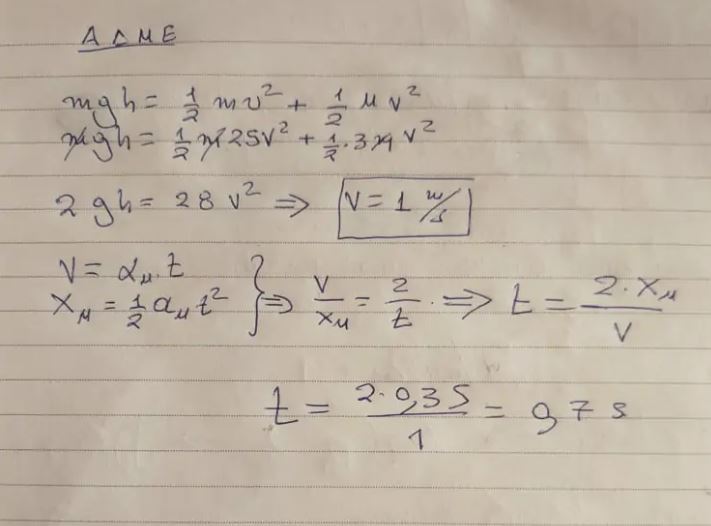 ΑΔΜΕ
mgh = 1/2 mυ² + 1/2 M V²
mgh = 1/2 m 25V² + 1/2 · 3m V²
2gh = 28 V² ⇒ V = 1 m/s
V = α_M · t
X_M = 1/2 α_M t² } ⇒ V/X_M = 2/t ⇒ t = 2·X_M/V
t = 2·0,35/1 = 0,7 s